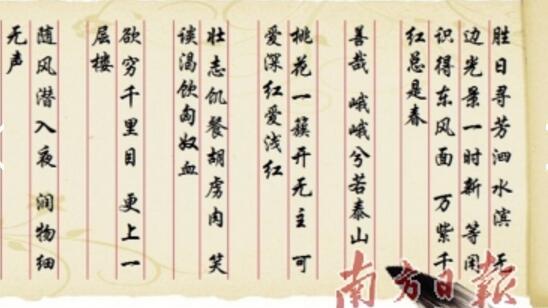 胜日寻芳泗水滨 无
边光景一时新 等闲
识得东风面 万紫千
红总是春
善哉 峨峨兮若泰山
桃花一簇开无主 可
爱深红爱浅红
壮志饥餐胡虏肉 笑
谈渴饮匈奴血
欲穷千里目 更上一
层楼
随风潜入夜 润物细
无声
南方日报